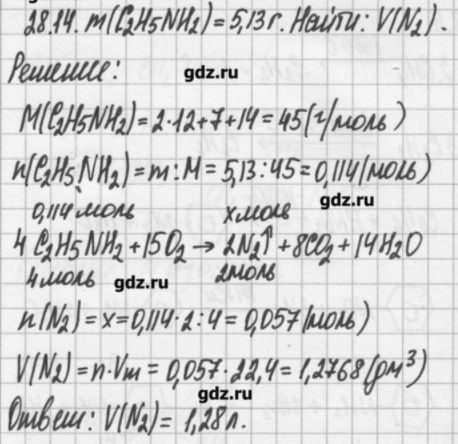 28.14. m(C₂H5NH₂) = 5,13г. Найти: V(N₂).
Решение:
gdz.ru
M(C₂H5NH₂) = 2·12+7+14 = 45(г/моль)
n(C₂H5NH₂) = m : M = 5,13 : 45 = 0,114(моль)
gdz.ru
0,114 моль x моль
4 C₂H5NH₂ + 15O₂ → 2N₂↑ + 8CO₂ + 14H₂O
4 моль gdz.ru 2моль
n(N₂) = x = 0,114·2 : 4 = 0,057(моль)
V(N₂) = n·Vm = 0,057·22,4 = 1,2768(дм³)
gdz.ru
Ответ: V(N₂) = 1,28л.